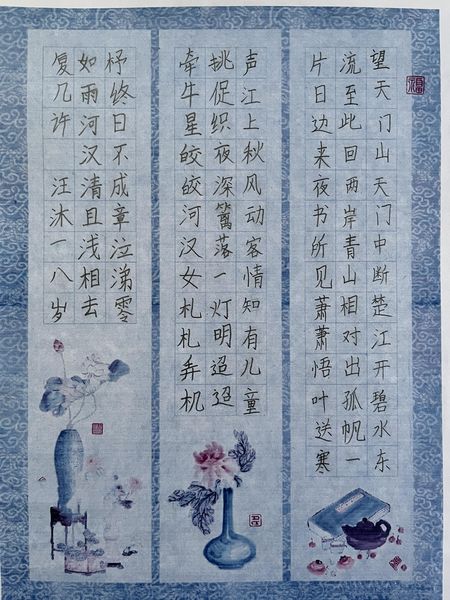 望天门山天门中断楚江开碧水东
流至此回两岸青山相对出孤帆一
片日边来夜书所见萧萧悟叶送寒
声江上秋风动客情知有儿童
挑促织夜深篱落一灯明迢迢
牵牛星皎皎河汉女札札弄机
杼终日不成章泣涕零
如雨河汉清且浅相去
复几许 汪沐一八岁